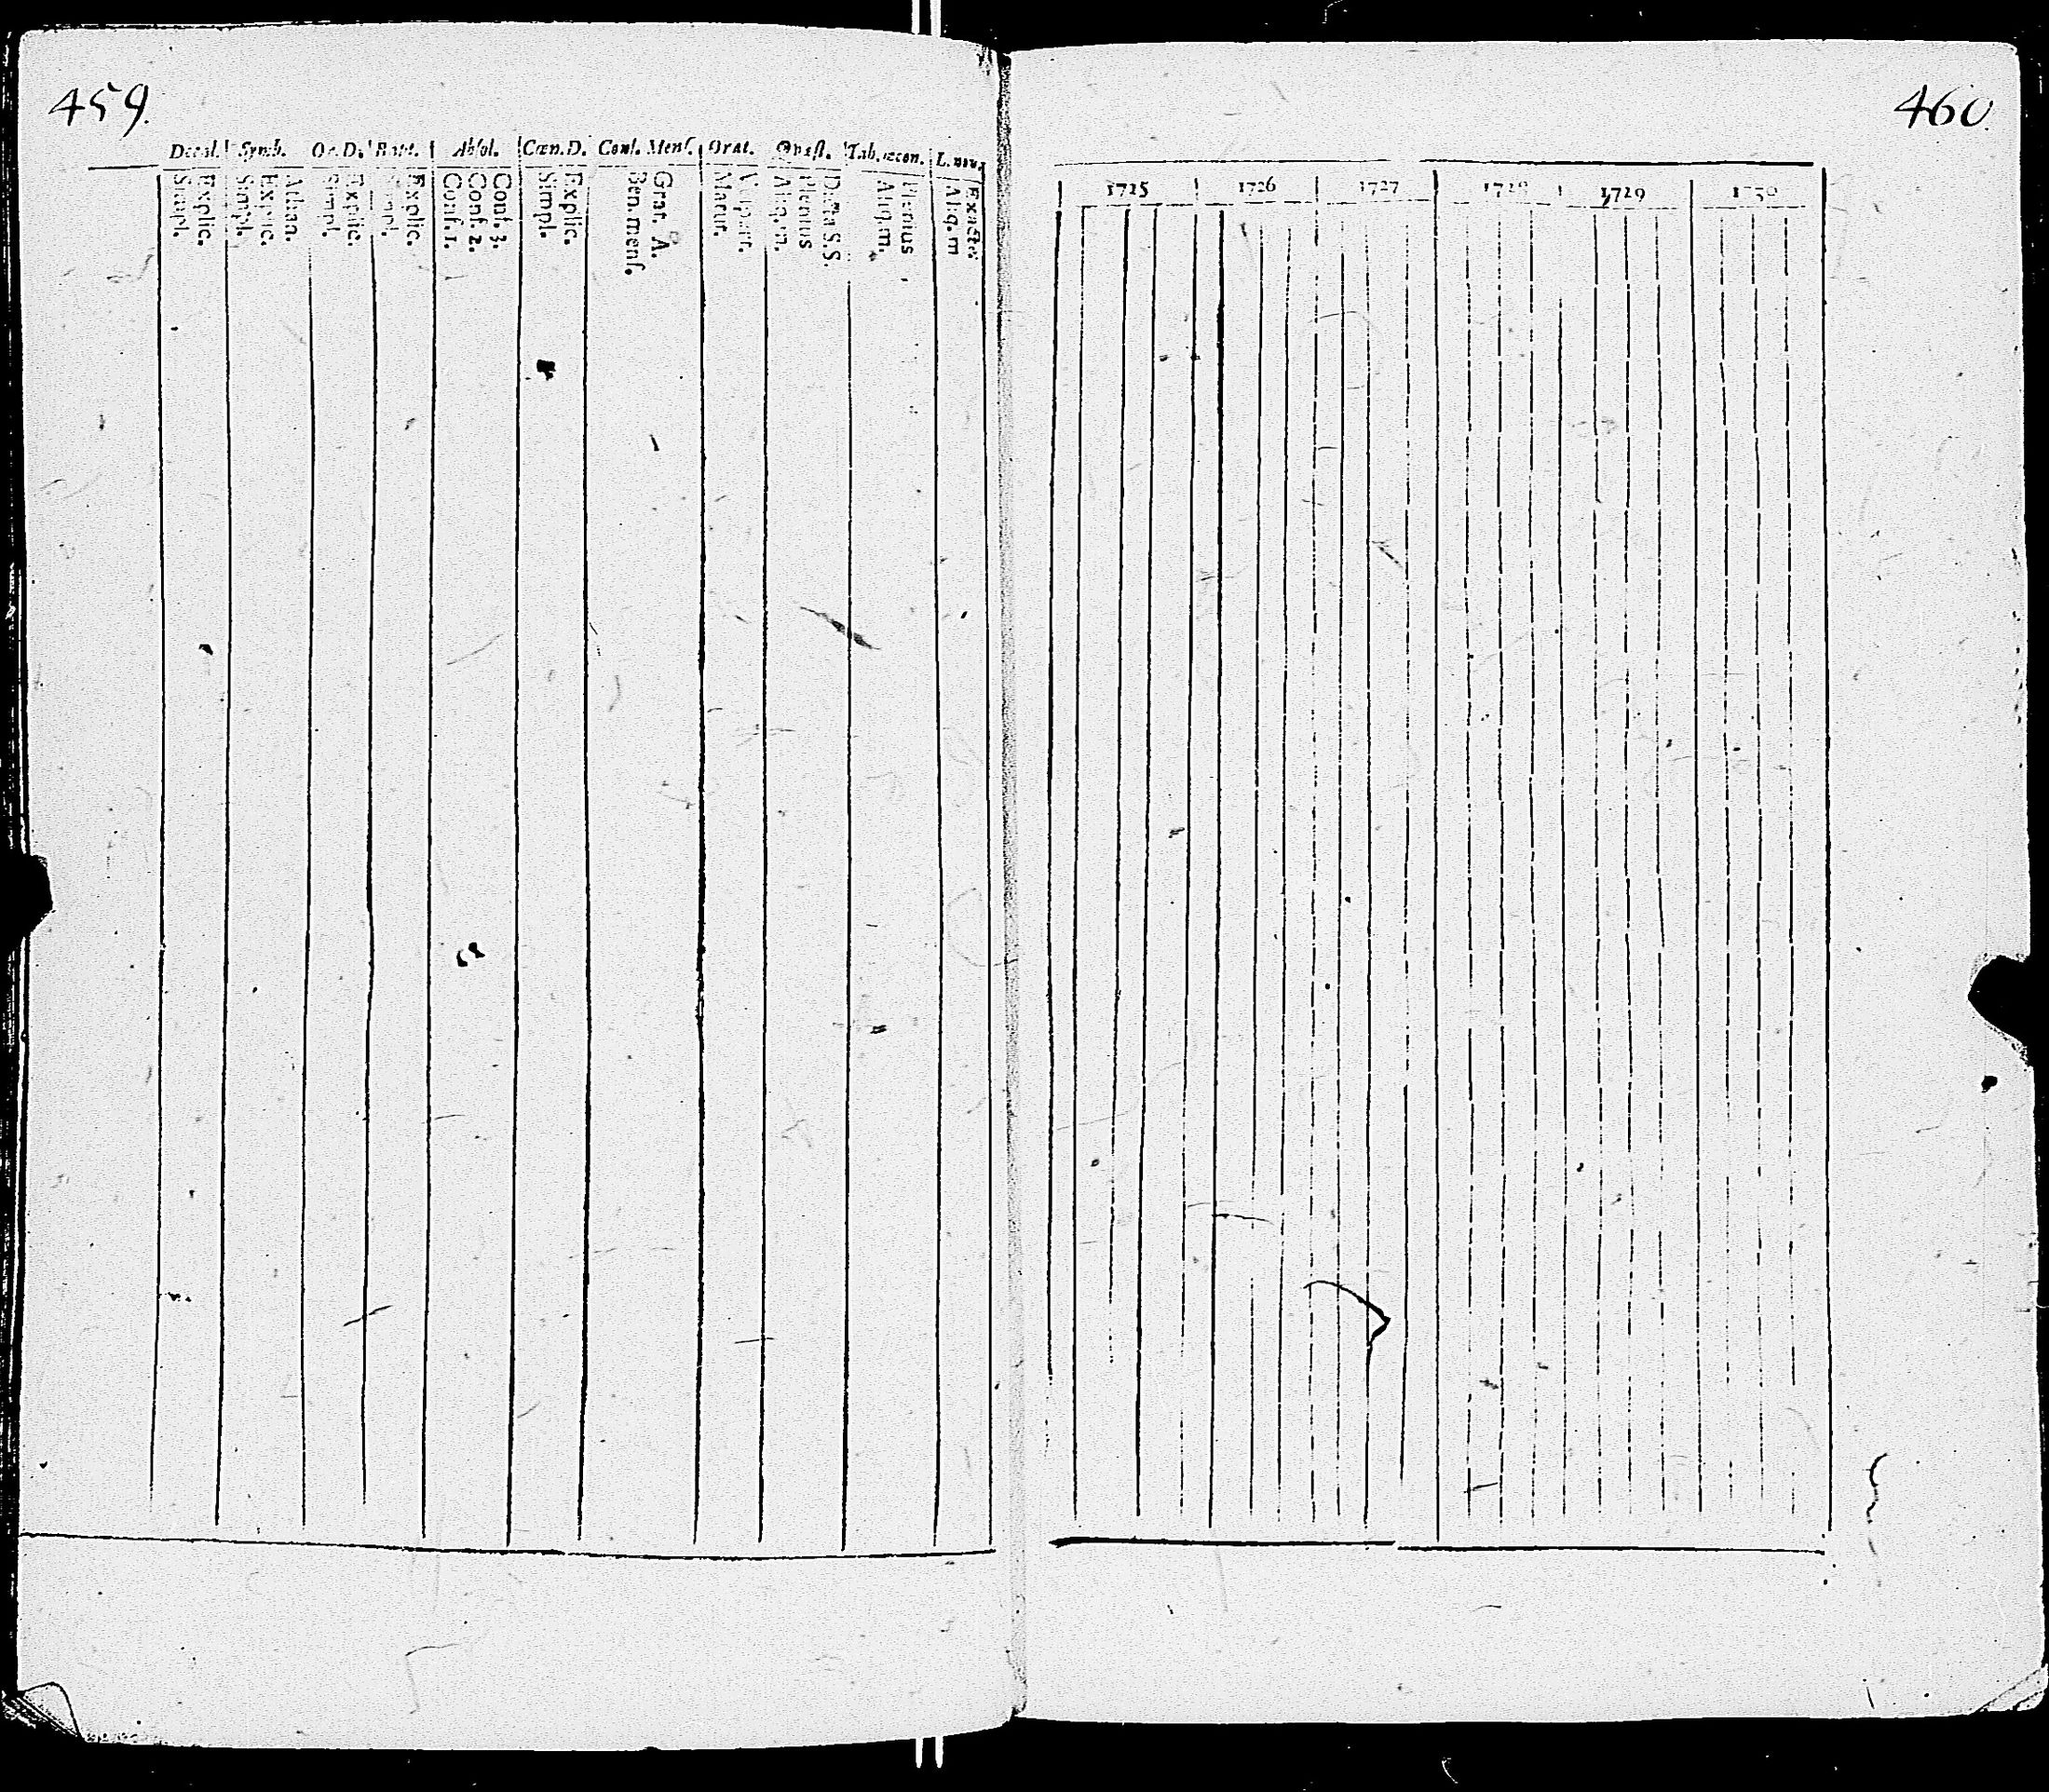 459.
Decal. Symb. Or. D. Bapt. Absol. Cœn. D. Conf. Menſ. Orat. Quæſt. Tab. œcon. L. nov.
Simpl.
Explic.
Simpl.
Explic.
Athan.
Simpl.
Explic.
Simpl.
Explic.
Conf. 1.
Conf. 2.
Conf. 3.
Simpl.
Explic.
Ben. menſ.
Grat. A.
Matut.
Veſpart.
Aliq. m.
Plenius
Dicta S. S.
Aliq. m.
Plenius
Aliq. m
Exacte.
460.
1725 1726 1727 1728 1729 1730